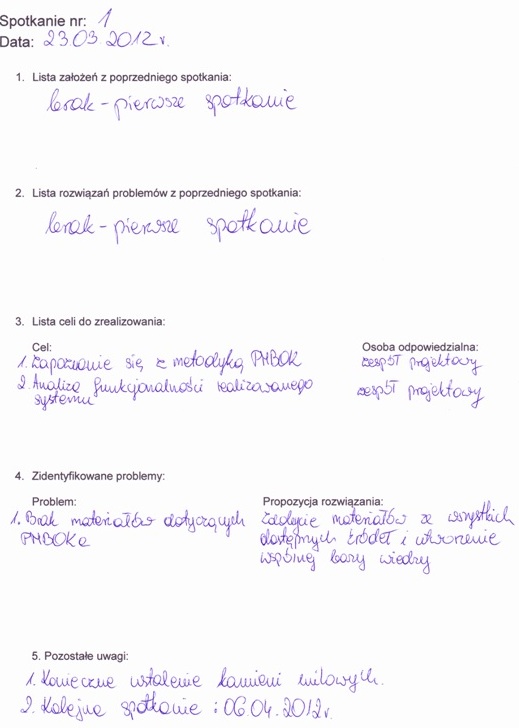 Spotkanie nr: 1
Data: 23.03.2012r.
1. Lista założeń z poprzedniego spotkania:
brak - pierwsze spotkanie
2. Lista rozwiązań problemów z poprzedniego spotkania:
brak - pierwsze spotkanie
3. Lista celi do zrealizowania:
Cel: Osoba odpowiedzialna:
1. Zapoznanie się z metodyką PMBOK zespół projektowy
2. Analiza funkcjonalności realizowanego zespół projektowy
systemu
4. Zidentyfikowane problemy:
Problem: Propozycja rozwiązania:
1. Brak materiałów dotyczących Zdobycie materiałów ze wszystkich
PMBOKa dostępnych źródeł i utworzenie
wspólnej bazy wiedzy
5. Pozostałe uwagi:
1. Konieczne ustalenie kamieni milowych.
2. Kolejne spotkanie: 06.04.2012r.